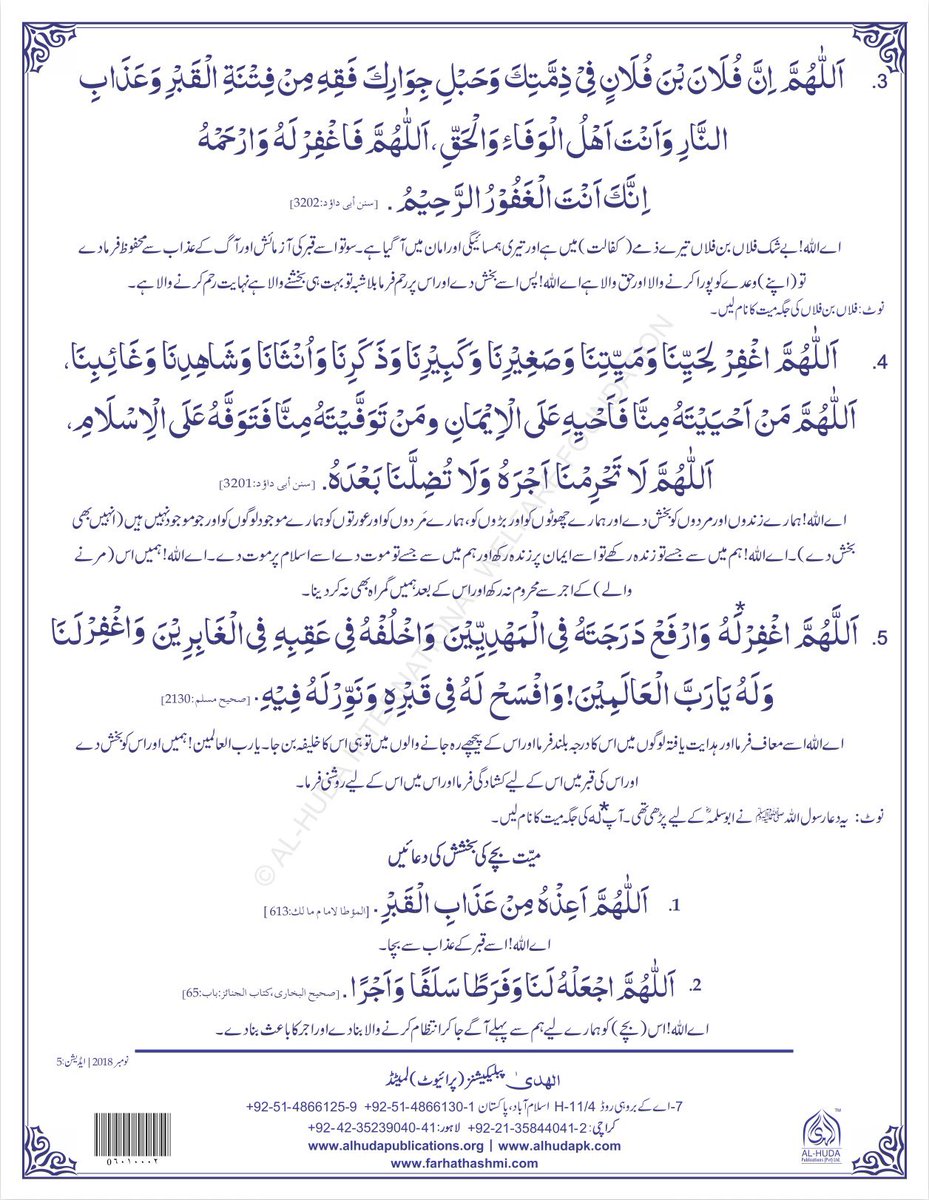 3. اَللّٰهُمَّ اِنَّ فُلَانَ بْنَ فُلَانٍ فِيْ ذِمَّتِكَ وَحَبْلِ جِوَارِكَ فَقِهِ مِنْ فِتْنَةِ الْقَبْرِ وَعَذَابِ
النَّارِ وَاَنْتَ اَهْلُ الْوَفَاءِ وَالْحَقِّ، اَللّٰهُمَّ فَاغْفِرْ لَهُ وَارْحَمْهُ
اِنَّكَ اَنْتَ الْغَفُوْرُ الرَّحِيْمُ. [سنن أبی داؤد:3202]
اے اللہ! بے شک فلاں بن فلاں تیرے ذمے (کفالت) میں ہے اور تیری ہمسائیگی اور امان میں آ گیا ہے۔ سو تو اسے قبر کی آزمائش اور آگ کے عذاب سے محفوظ فرما دے
تو (اپنے) وعدے کو پورا کرنے والا اور حق والا ہے اے اللہ! پس اسے بخش دے اور اس پر رحم فرما بلاشبہ تو بہت ہی بخشنے والا ہے نہایت رحم کرنے والا ہے۔
نوٹ: فلاں بن فلاں کی جگہ میت کا نام لیں۔
4. اَللّٰهُمَّ اغْفِرْ لِحَيِّنَا وَمَيِّتِنَا وَصَغِيْرِنَا وَكَبِيْرِنَا وَذَكَرِنَا وَاُنْثَانَا وَشَاهِدِنَا وَغَائِبِنَا،
اَللّٰهُمَّ مَنْ اَحْيَيْتَهُ مِنَّا فَاَحْيِهِ عَلَى الْاِيْمَانِ وَمَنْ تَوَفَّيْتَهُ مِنَّا فَتَوَفَّهُ عَلَى الْاِسْلَامِ،
اَللّٰهُمَّ لَا تَحْرِمْنَا اَجْرَهُ وَلَا تُضِلَّنَا بَعْدَهُ. [سنن أبی داؤد:3201]
اے اللہ! ہمارے زندوں اور مردوں کو بخش دے اور ہمارے چھوٹوں کو اور بڑوں کو، ہمارے مَردوں کو اور عورتوں کو ہمارے موجود لوگوں کو اور جو موجود نہیں ہیں (انہیں بھی
بخش دے)۔ اے اللہ! ہم میں سے جسے تو زندہ رکھے تو اسے ایمان پر زندہ رکھ اور ہم میں سے جسے تو موت دے اسے اسلام پر موت دے۔ اے اللہ! ہمیں اس (مرنے
والے) کے اجر سے محروم نہ رکھ اور اس کے بعد ہمیں گمراہ بھی نہ کر دینا۔
5. اَللّٰهُمَّ اغْفِرْ لَهُ* وَارْفَعْ دَرَجَتَهُ فِي الْمَهْدِيِّيْنَ وَاخْلُفْهُ فِي عَقِبِهِ فِي الْغَابِرِيْنَ وَاغْفِرْ لَنَا
وَلَهُ يَارَبَّ الْعَالَمِيْنَ! وَافْسَحْ لَهُ فِي قَبْرِهِ وَنَوِّرْ لَهُ فِيْهِ. [صحیح مسلم:2130]
اے اللہ! اسے معاف فرما اور ہدایت یافتہ لوگوں میں اس کا درجہ بلند فرما اور اس کے پیچھے رہ جانے والوں میں تو ہی اس کا خلیفہ بن جا۔ یارب العالمین! ہمیں اور اس کو بخش دے
اور اس کی قبر میں اس کے لیے کشادگی فرما اور اس میں اس کے لیے روشنی فرما۔
نوٹ: یہ دعا رسول اللہ ﷺ نے ابو سلمہؓ کے لیے پڑھی تھی۔ آپ *لہ کی جگہ میت کا نام لیں۔
میّت بچے کی بخشش کی دعائیں
1. اَللّٰهُمَّ اَعِذْهُ مِنْ عَذَابِ الْقَبْرِ. [المؤطا لامام مالك:613]
اے اللہ! اسے قبر کے عذاب سے بچا۔
2. اَللّٰهُمَّ اجْعَلْهُ لَنَا وَفَرَطًا سَلَفًا وَاَجْرًا. [صحیح البخاری،کتاب الجنائز:باب:65]
اے اللہ! اس (بچے) کو ہمارے لیے ہم سے پہلے آگے جا کر انتظام کرنے والا بنا دے اور اجر کا باعث بنا دے۔
نومبر 2018 | ایڈیشن:5
الھدیٰ پبلیکیشنز (پرائیوٹ) لمیٹڈ
7-اے کے بروہی روڈ H-11/4 اسلام آباد، پاکستان +92-51-4866130-1 +92-51-4866125-9
کراچی: +92-21-35844041-2 لاہور: +92-42-35239040-41
www.alhudapublications.org | www.alhudapk.com
www.farhathashmi.com
٠٥٦٠١٠٠٠٢
AL-HUDA
Publications (Pvt) Ltd.
TM
© AL-HUDA INTERNATIONAL WELFARE FOUNDATION